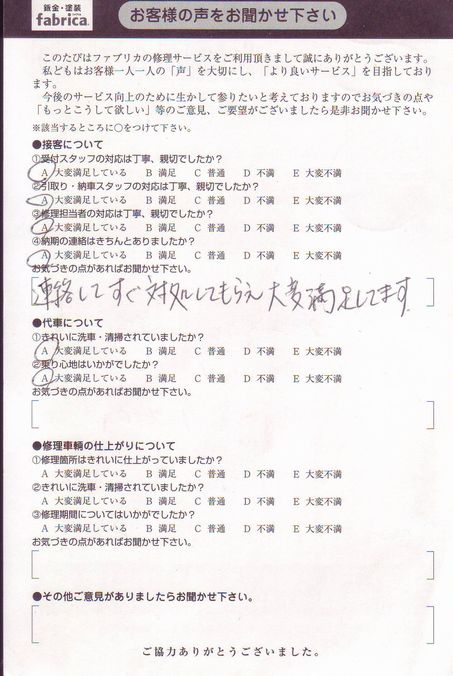 鈑金・塗装
fabrica
お客様の声をお聞かせ下さい
このたびはファブリカの修理サービスをご利用頂きまして誠にありがとうございます。
私どもはお客様一人一人の「声」を大切にし、「より良いサービス」を目指しており
ます。
今後のサービス向上のために生かして参りたいと考えておりますのでお気づきの点や
「もっとこうして欲しい」等のご意見、ご要望がございましたら是非お聞かせ下さい。
※該当するところに○をつけて下さい。
●接客について
①受付スタッフの対応は丁寧、親切でしたか？
A 大変満足している B 満足 C 普通 D 不満 E 大変不満
②引取り・納車スタッフの対応は丁寧、親切でしたか？
A 大変満足している B 満足 C 普通 D 不満 E 大変不満
③修理担当者の対応は丁寧、親切でしたか？
A 大変満足している B 満足 C 普通 D 不満 E 大変不満
④納期の連絡はきちんとありましたか？
A 大変満足している B 満足 C 普通 D 不満 E 大変不満
お気づきの点があればお聞かせ下さい。
連絡してすぐ対処してもらえ大変満足してます
●代車について
①きれいに洗車・清掃されていましたか？
A 大変満足している B 満足 C 普通 D 不満 E 大変不満
②乗り心地はいかがでしたか？
A 大変満足している B 満足 C 普通 D 不満 E 大変不満
お気づきの点があればお聞かせ下さい。
●修理車輌の仕上がりについて
①修理箇所はきれいに仕上がっていましたか？
A 大変満足している B 満足 C 普通 D 不満 E 大変不満
②きれいに洗車・清掃されていましたか？
A 大変満足している B 満足 C 普通 D 不満 E 大変不満
③修理期間についてはいかがでしたか？
A 大変満足している B 満足 C 普通 D 不満 E 大変不満
お気づきの点があればお聞かせ下さい。
●その他ご意見がありましたらお聞かせ下さい。
ご協力ありがとうございました。